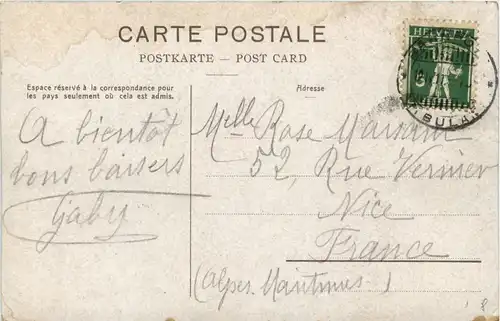 CARTE POSTALE
POSTKARTE – POST CARD
Espace réservé à la correspondance pour
les pays seulement où cela est admis.
Adresse
HELVETIA
5
BULA
A bientôt
bons baisers
Gaby
Melle Rose
52, Rue Vernier
Nice
France
(Alpes Maritimes)